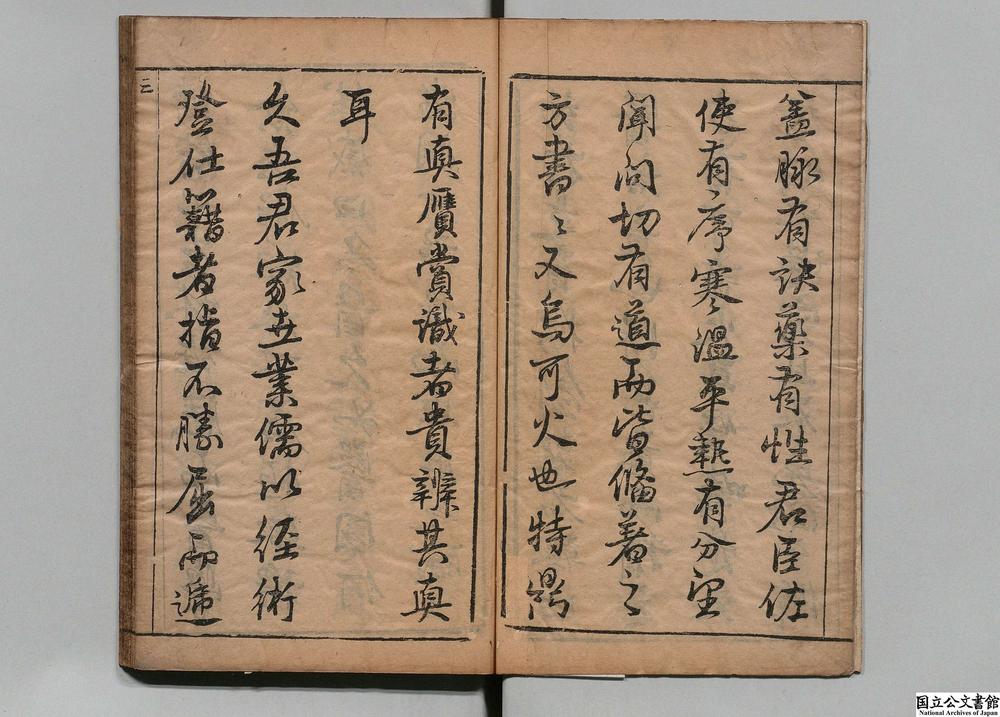 蓋脉有訣藥有性君臣佐
使有序寒溫平熱有分望
聞問切有道而皆脩著之
方書〻又烏可火也特鼎
有真贗賞識者貴辨其真
耳
久吾君家世業儒以經術
登仕籍者指不勝屈而遞
三
国立公文書館
National Archives of Japan